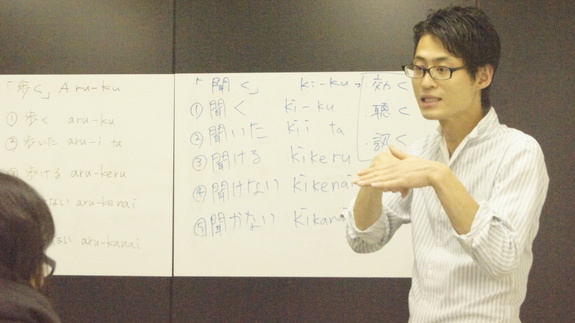 「歩く」 Aru-ku
① 歩く aru-ku
② 歩いた aru-i ta
歩ける aru-keru
ない aru-kenai
ない aru-kanai
「聞く」 ki-ku
① 聞く ki-ku
② 聞いた kii ta
③ 聞ける kikeru
④ 聞けない kikenai
⑤ 聞かない kikana
効く
聴く
訊く